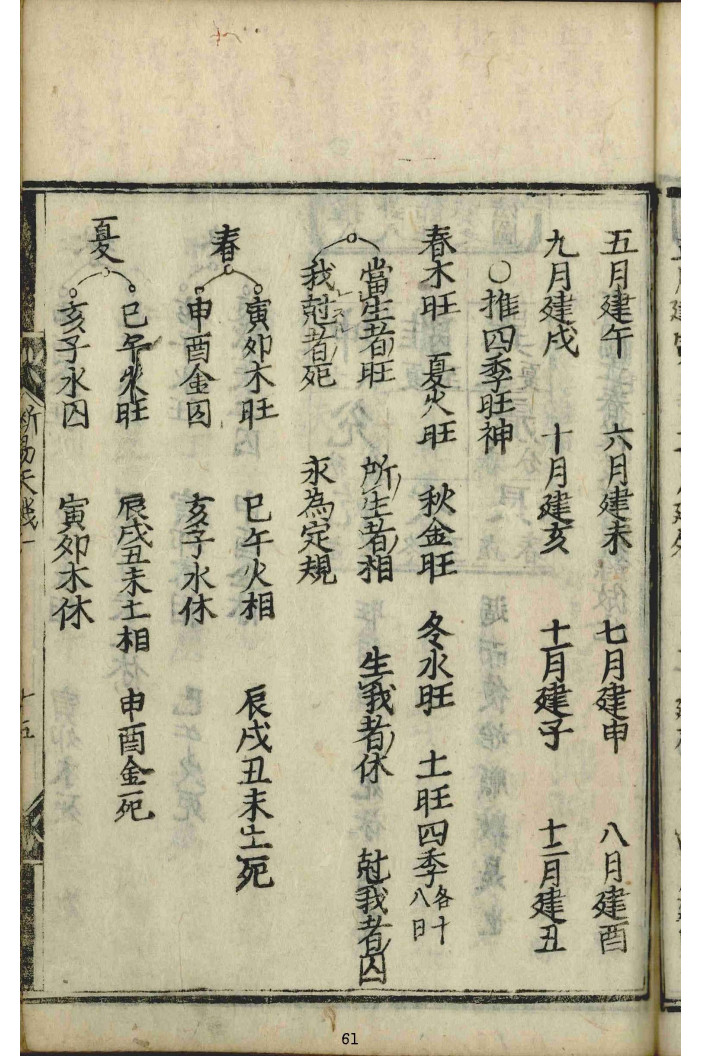 五月建午　六月建未　七月建申　八月建酉
九月建戌　十月建亥　十一月建子　十二月建丑
○推四季旺神
春木旺　夏火旺　秋金旺　冬水旺　土旺四季各十八日
當生者旺　所生者相　生我者休　尅我者囚
我尅者死　永為定規
春
寅夘木旺　巳午火相　辰戌丑未土死
申酉金囚　亥子水休
夏
巳午火旺　辰戌丑未土相　申酉金死
亥子水囚　寅夘木休
断易天機一
十五
61